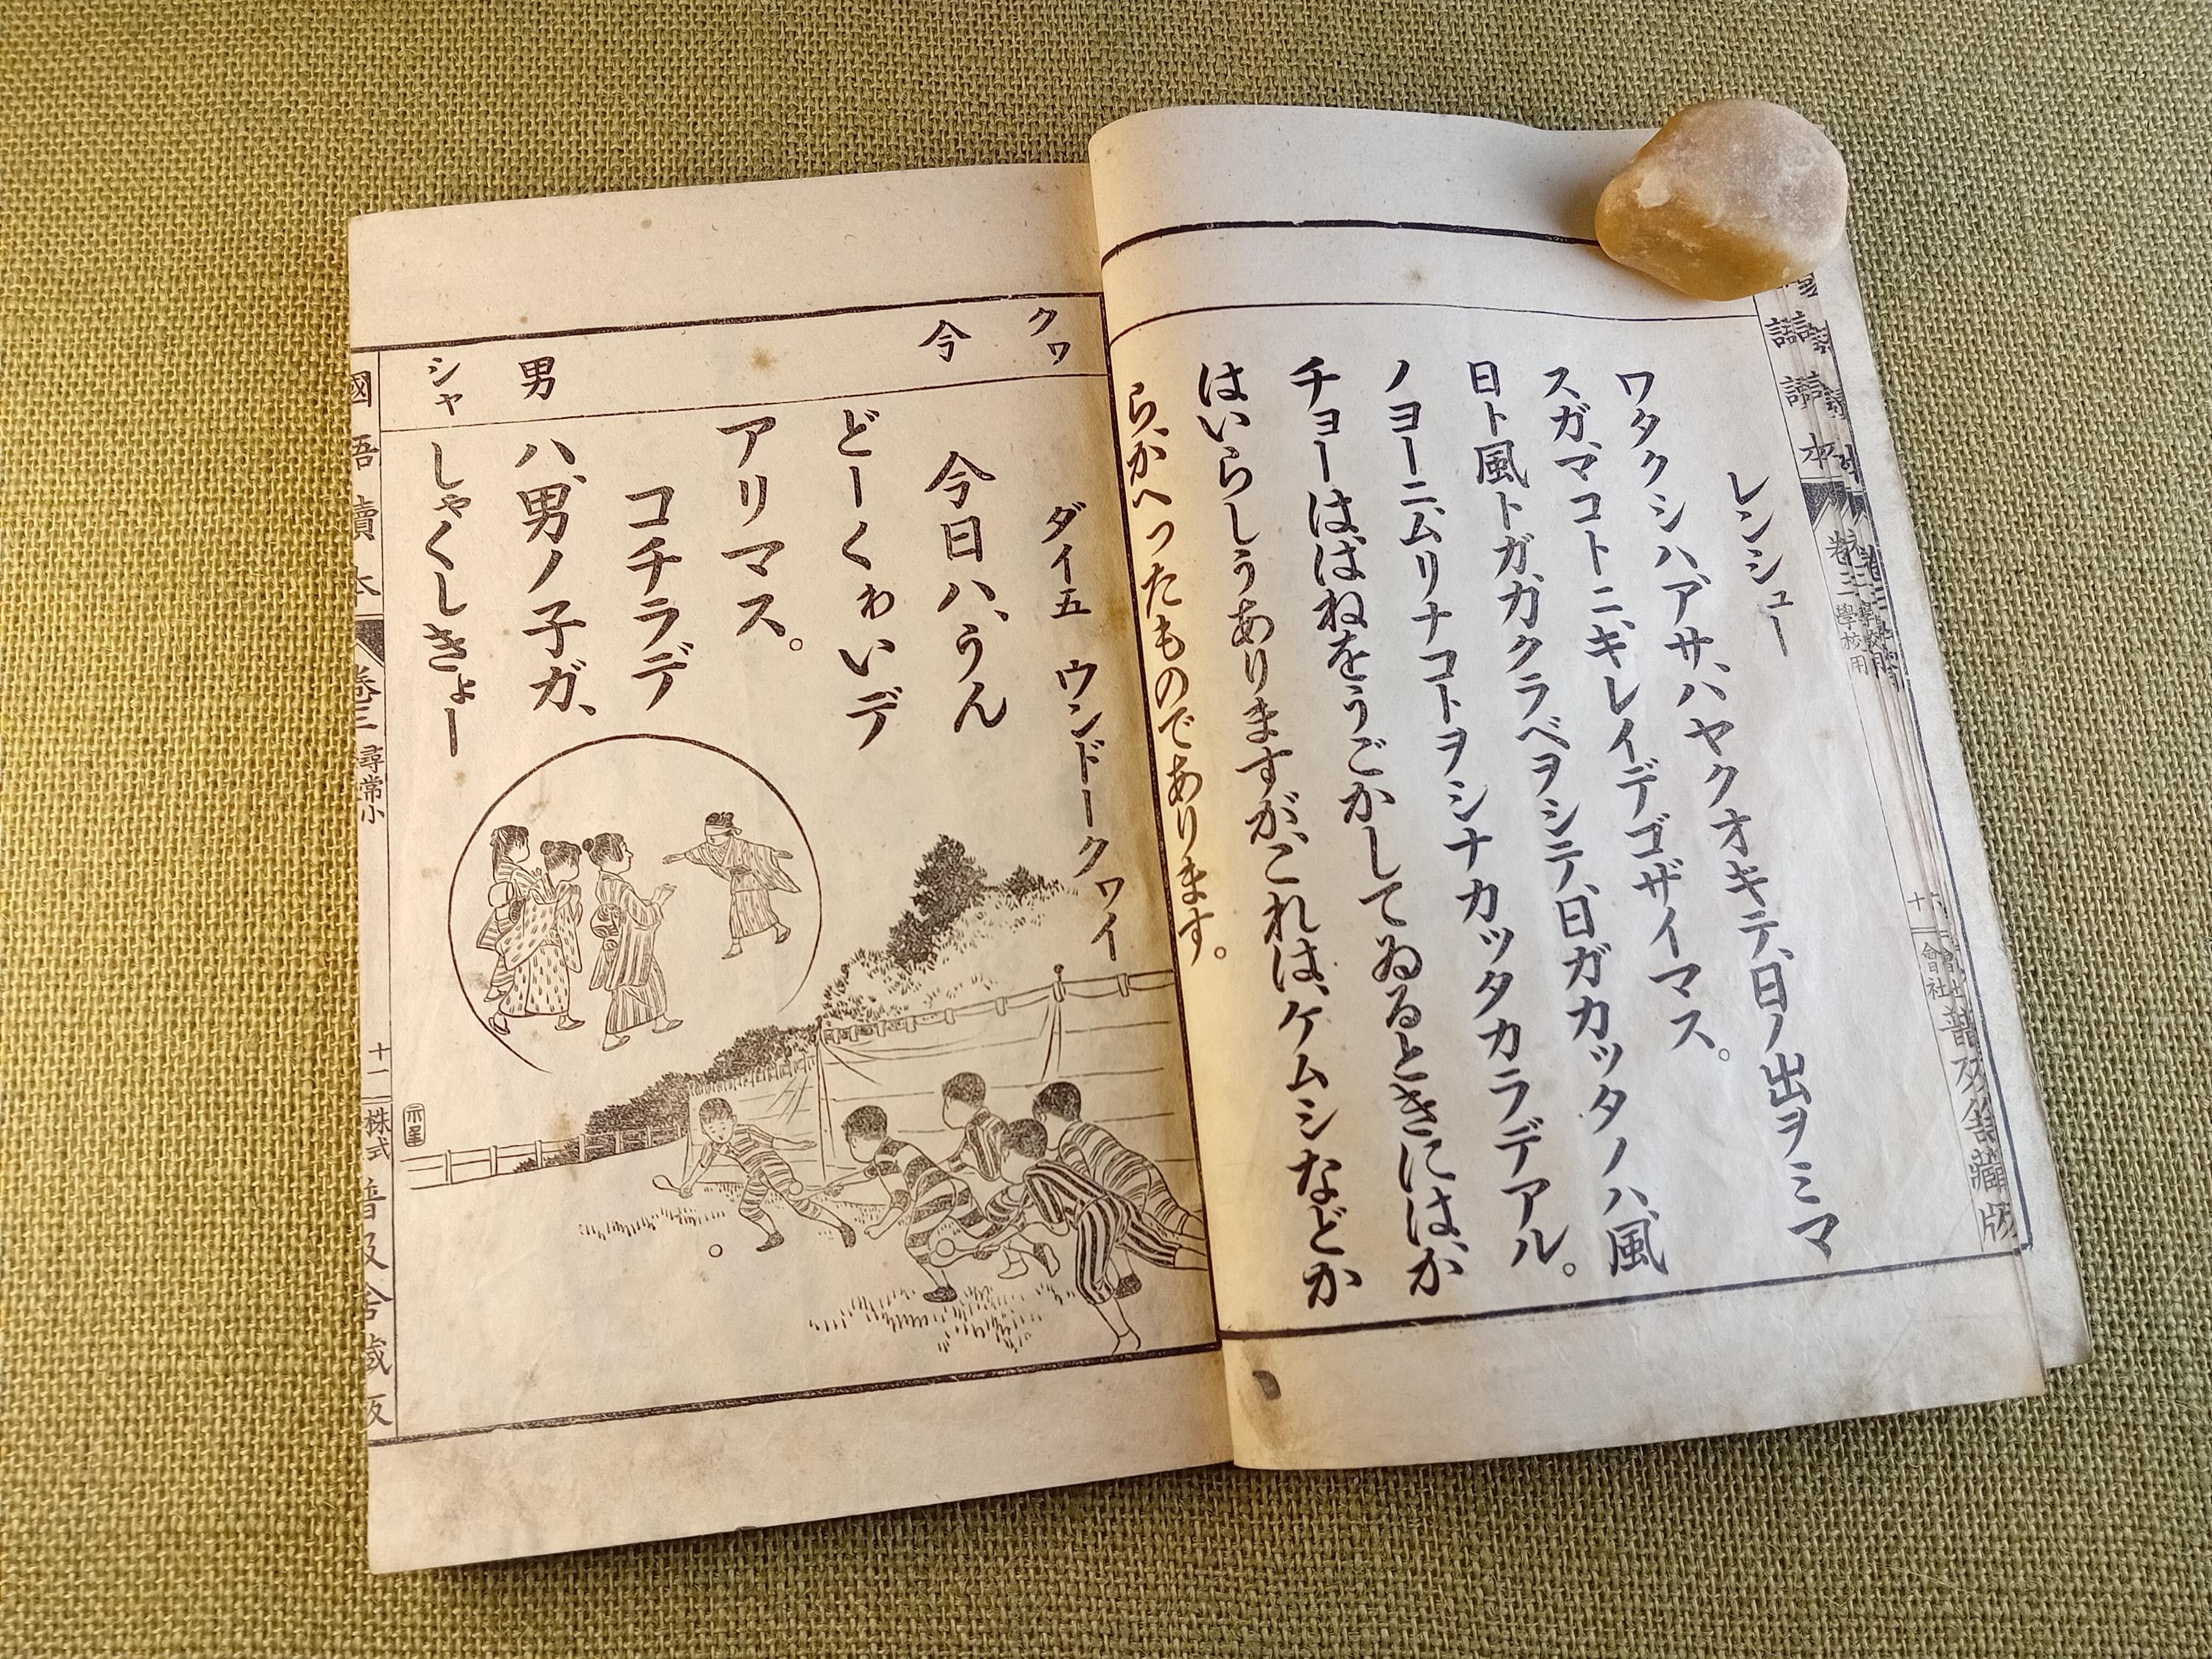 レンシュー
ワタクシハ、アサ、ハヤクオキテ、日ノ出ヲミマ
スガ、マコトニ、キレイデゴザイマス。
日ト風トガ、カクラベヲシテ、日ガカッタノハ、風
ノヨーニ、ムリナコトヲシナカッタカラデアル。
チョーははねをうごかしてゐるときには、か
はいらしうありますが、これは、ケムシなどか
ら、かへったものであります。
クワ
ダイ五 ウンドークヮイ
今
今日ハ、うん
どーくゎいデ
アリマス。
コチラデ
男
ハ、男ノ子ガ、
シャ
しゃくしきょー
國語讀本
卷三 尋常小
十一
株式
普及舍藏版